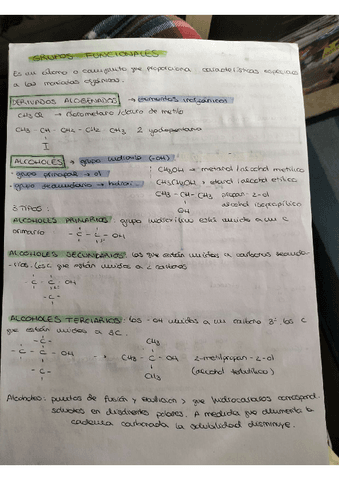 GRUPOS FUNCIONALES
Es un átomo o conjunto que proporciona características especiales
a las moléculas orgánicas.
DERIVADOS ALOGENADOS → elementos inorgánicos
CH3Cl → clorometano/cloruro de metilo
CH3 - CH - CH2 - CH2 - CH3 2 yodopentano
I
ALCOHOLES → grupo hidroxilo (-OH)
- grupo principal → ol
- grupo secundario → hidroxi
CH3OH → metanol/alcohol metílico
CH3CH2OH → etanol/alcohol etílico
CH3 - CH - CH3 propan-2-ol
OH alcohol isopropílico
3 TIPOS:
ALCOHOLES PRIMARIOS: grupo hidroxilo están unido a un C
primario - C - C - OH
ALCOHOLES SECUNDARIOS: los que están unidos a carbonos secunda-
rios. los C que están unidos a 2 carbonos
- C - C - OH
- C -
ALCOHOLES TERCIARIOS: los -OH unidos a un carbono 3º los C
que están unidos a 3C.
- C -
- C - C - OH
- C -
CH3
CH3 - C - OH 2-metilpropan-2-ol
CH3 (alcohol terbutílico)
Alcoholes: puntos de fusión y ebullición > que hidrocarburos correspond.
solubles en disolventes polares. A medida que aumenta la
cadena carbonada la solubilidad disminuye.